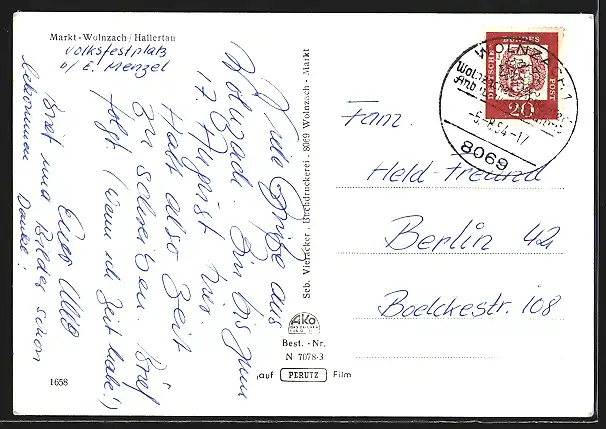 Markt - Wolnzach / Hallertau
Volksfestplatz
b/ E. Menzel
Viele Grüße aus
Wolnzach. Bin bis zum
17. August hier.
Halt also Zeit
zu schreiben. Brief
folgt (wenn ich Zeit habe!)
Euer
Brief und Bilder schon
bekommen
Danke!
Seb. Vieracker, Buchdruckerei, 8069 Wolnzach - Markt
AKO
Best. - Nr.
N 7078-3
auf PERUTZ Film
1658
DEUTSCHE BUNDESPOST
20
WOLNZACH 1
8069
Fam.
Held-Freund
Berlin 42
Boelckestr. 108